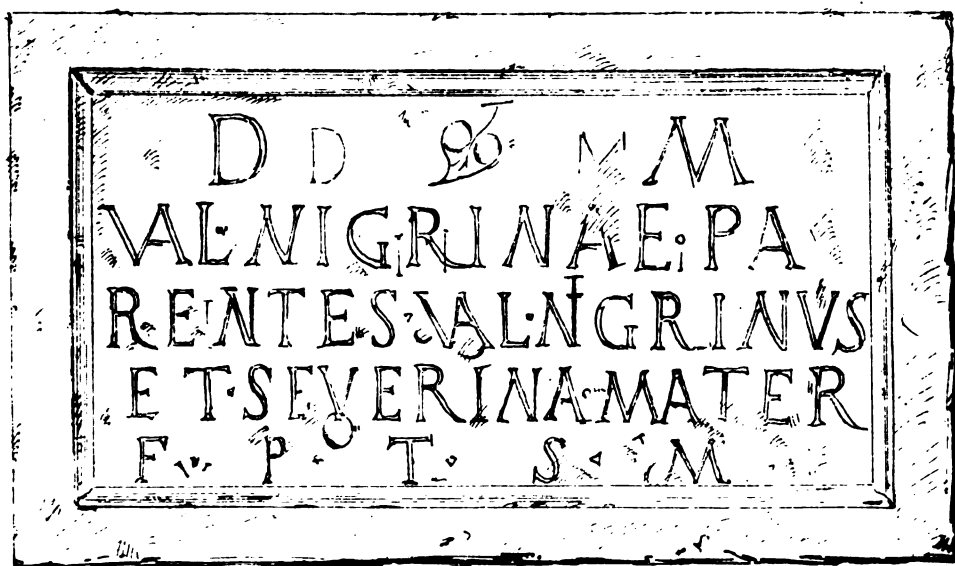 D D M M
VAL·NIGRINAE·PA
RENTES·VAL·NIGRINVS
ET·SEVERINA·MATER
F · P · T · S · M